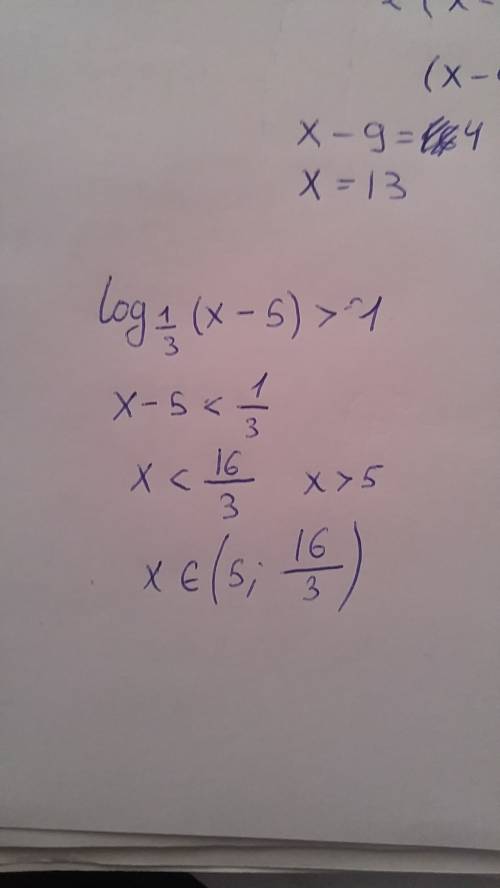 (x-
x-9=4
x=13
log_{1/3}(x-5)>1
x-5<1/3
x<16/3 x>5
x∈(5; 16/3)